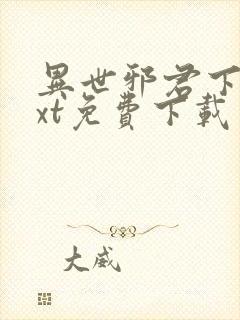 異世邪君下
xt免費下載
大威